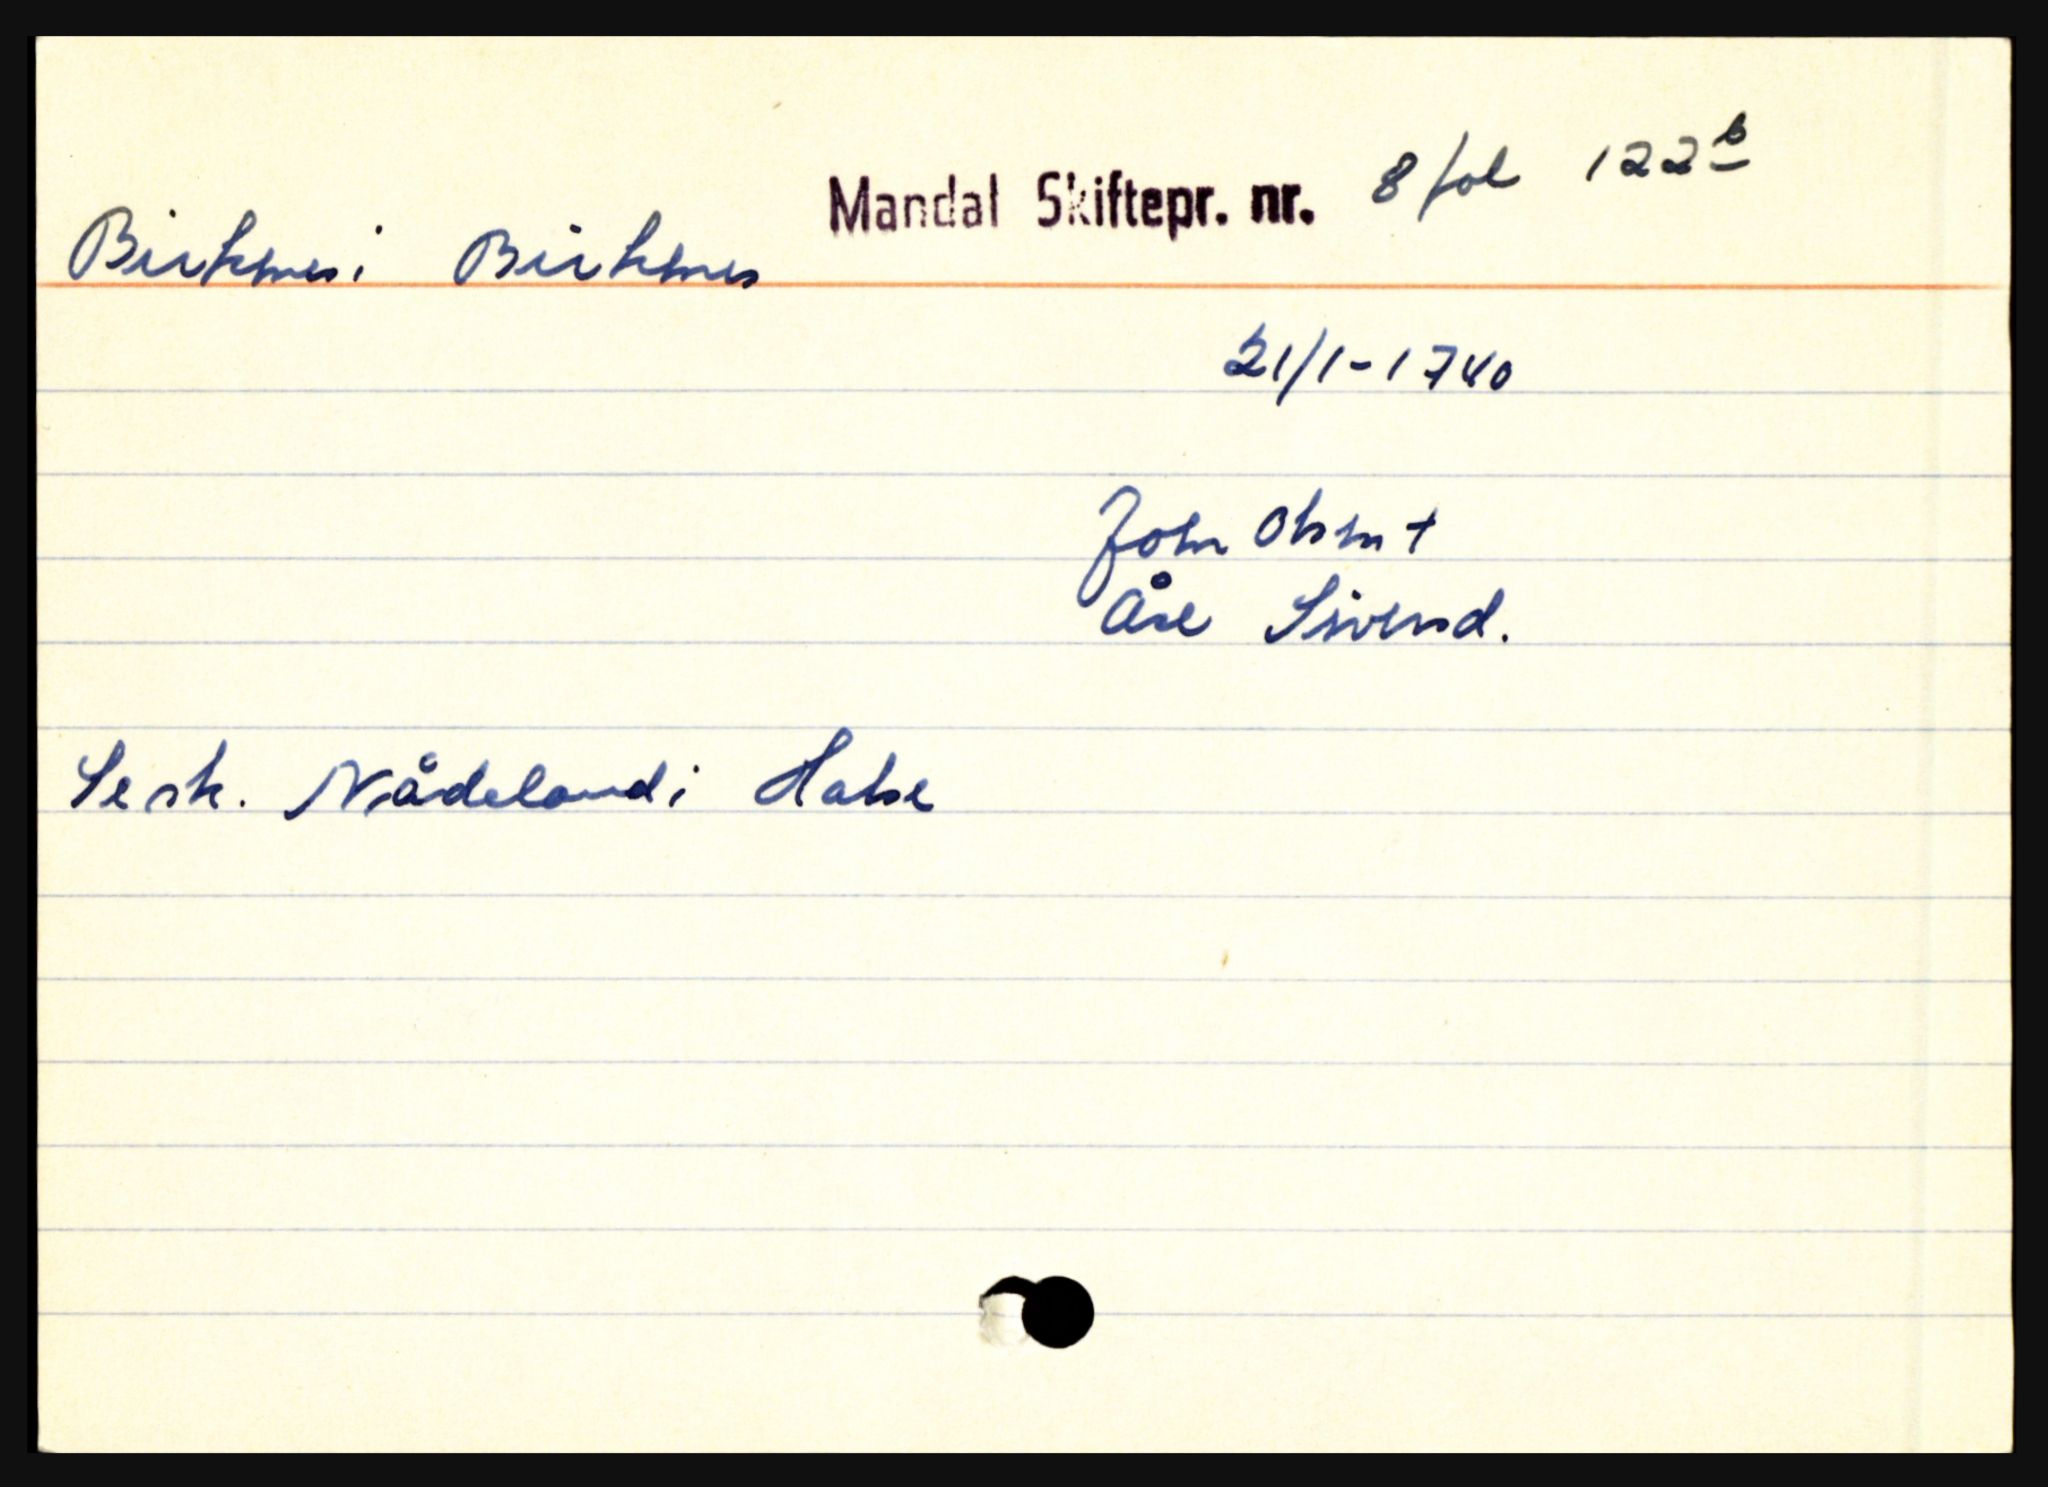 Mandal Skiftepr. nr. 8 fol 122b
Birkenes i Birkenes
21/1-1740
John Olsen +
Åse Sivensd.
Se sk. Nådeland i Halse